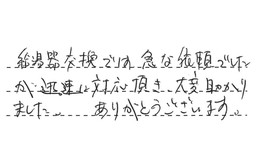 給湯器交換では、急な依頼でした
が、迅速に対応頂き、大変助かり
ました。 ありがとうございます。